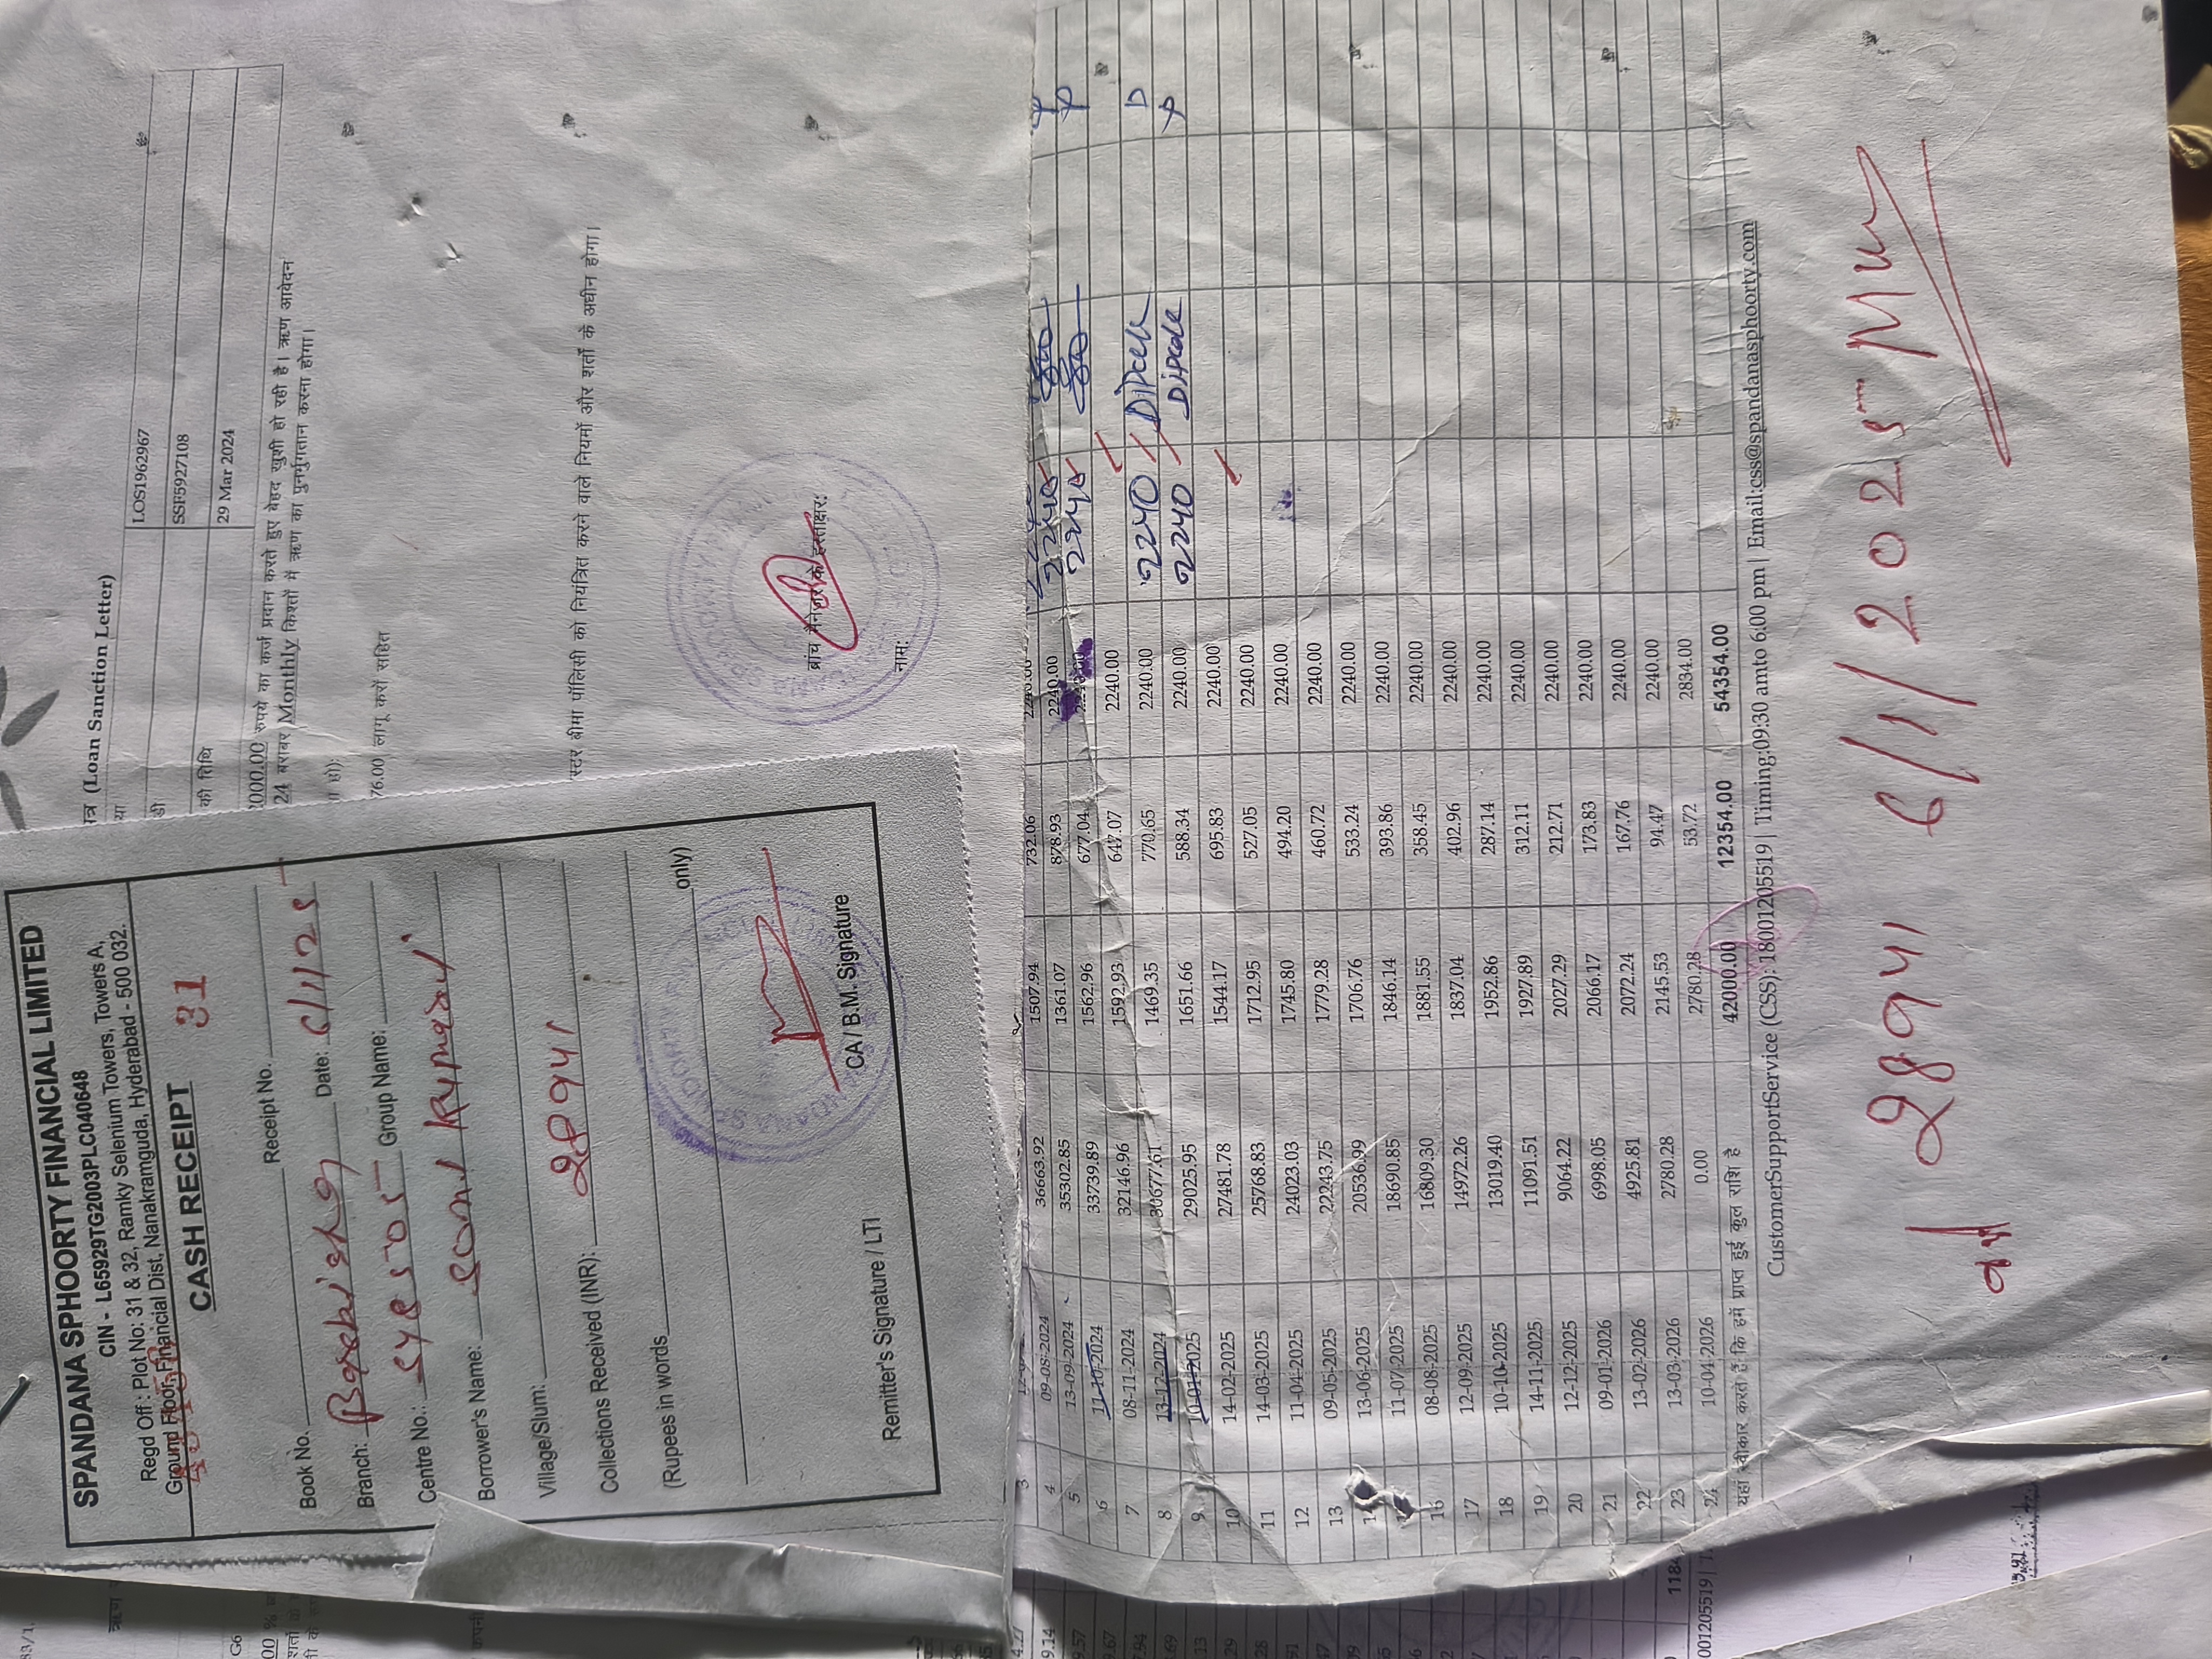 SPANDANA SPHOORTY FINANCIAL LIMITED
CIN - L65929TG2003PLC040648
Regd Off : Plot No: 31 & 32, Ramky Selenium Towers, Towers A,
Ground Floor, Financial Dist, Nanakramguda, Hyderabad - 500 032.
CASH RECEIPT 31
Book No. Receipt No.
Branch: Date: 6/1/25
Centre No.: Group Name:
Borrower's Name: Kumari
Village/Slum:
Collections Received (INR): 28941
(Rupees in words only)
Remitter's Signature / LTI CA / B.M. Signature
त्र (Loan Sanction Letter)
या LOS1962967
डी SSF5927108
की तिथि 29 Mar 2024
000.00 रुपये का कर्ज प्रदान करते हुए बेहद खुशी हो रही है। ऋण आवेदन
24 बराबर Monthly किश्तों में ऋण का पुनर्भुगतान करना होगा।
हो):
76.00 लागू करों सहित
स्टर बीमा पॉलिसी को नियंत्रित करने वाले नियमों और शर्तों के अधीन होगा।
ब्रांच मैनेजर के हस्ताक्षर:
नाम:
3 36663.92 1507.94 732.06 2240.00
4 09-08-2024 35302.85 1361.07 878.93 2240.00 2240
5 13-09-2024 33739.89 1562.96 677.04 2240
6 11-10-2024 32146.96 1592.93 647.07 2240.00
7 08-11-2024 30677.61 1469.35 770.65 2240.00 2240 Dipak
8 13-12-2024 29025.95 1651.66 588.34 2240.00 2240 Dipak
9 10-01-2025 27481.78 1544.17 695.83 2240.00
10 14-02-2025 25768.83 1712.95 527.05 2240.00
11 14-03-2025 24023.03 1745.80 494.20 2240.00
12 11-04-2025 22243.75 1779.28 460.72 2240.00
13 09-05-2025 20536.99 1706.76 533.24 2240.00
13-06-2025 18690.85 1846.14 393.86 2240.00
11-07-2025 16809.30 1881.55 358.45 2240.00
16 08-08-2025 14972.26 1837.04 402.96 2240.00
17 12-09-2025 13019.40 1952.86 287.14 2240.00
18 10-10-2025 11091.51 1927.89 312.11 2240.00
19 14-11-2025 9064.22 2027.29 212.71 2240.00
20 12-12-2025 6998.05 2066.17 173.83 2240.00
21 09-01-2026 4925.81 2072.24 167.76 2240.00
22 13-02-2026 2780.28 2145.53 94.47 2240.00
23 13-03-2026 0.00 2780.28 53.72 2834.00
24 10-04-2026 42000.00 12354.00 54354.00
यहां स्वीकार करते हैं कि हमें प्राप्त हुई कुल राशि है
CustomerSupportService (CSS): 18001205519 | Timing:09:30 amto 6:00 pm | Email:css@spandanasphoorty.com
28941 6/1/2025